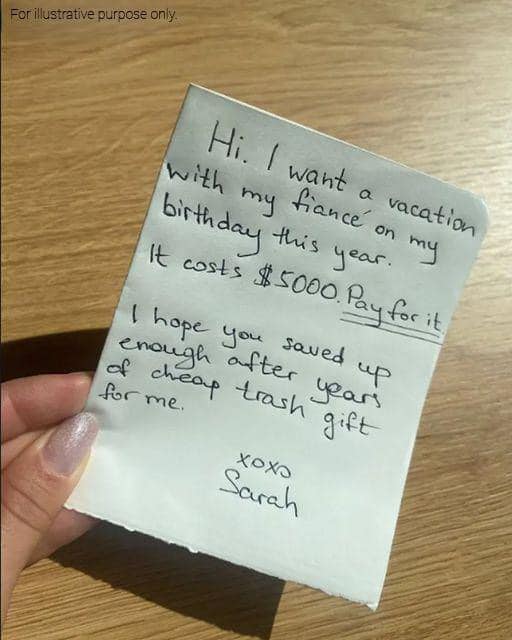 For illustrative purpose only.
Hi. I want a vacation
with my fiancé on my
birthday this year.
It costs $5000. Pay for it.
I hope you saved up
enough after years
of cheap trash gift
for me.
xoxo
Sarah